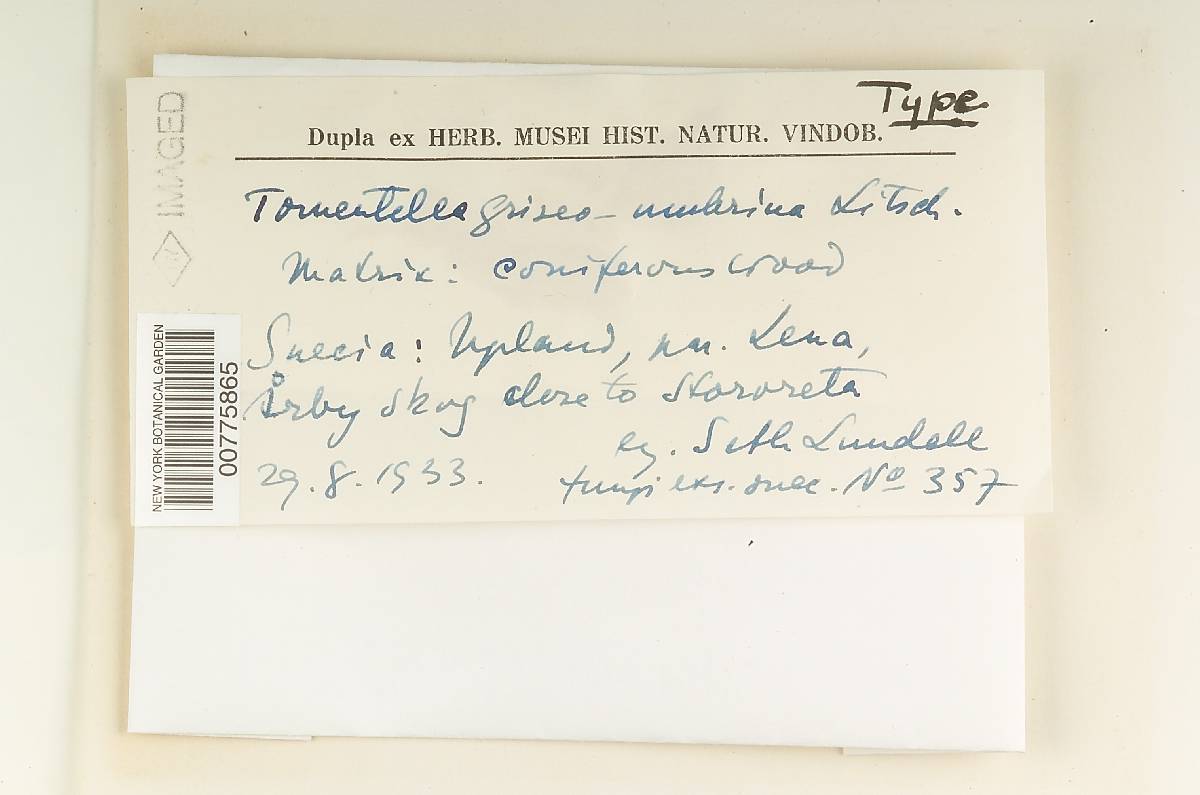 Type
Dupla ex HERB. MUSEI HIST. NATUR. VINDOB.
Tomentella griseo-umbrina Litsch.
Matrix: coniferous wood
Suecia: Upland, par. Lena,
Årby skog close to Storvreta
leg. Seth Lundell
29.8.1933.
fungi exs. suec. Nº 357
IMAGED
NEW YORK BOTANICAL GARDEN
00775865